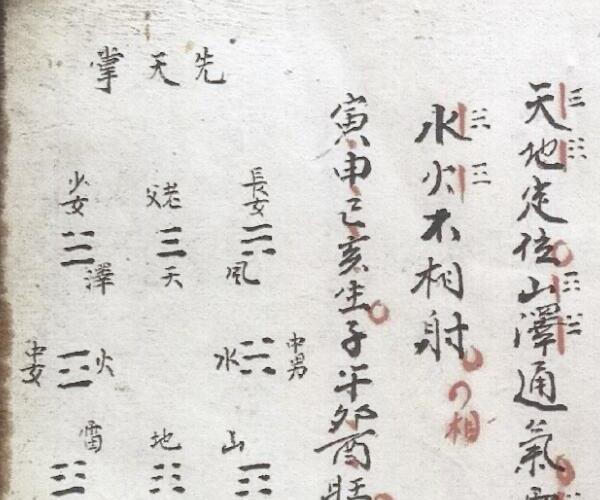 天地定位山澤通氣
水火不相射
の相
寅申己亥生子午卯酉旺
先天掌
長女 老父 少女
風 天 澤
中男 水 火 中女
山 地 雷